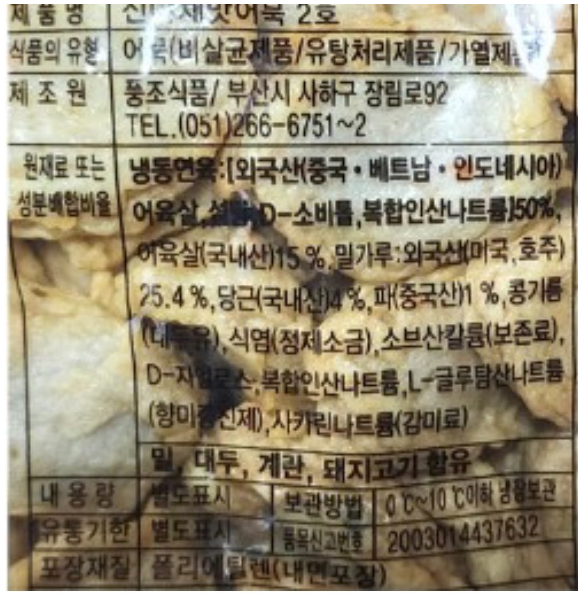 제품명 어묵 2호
식품의 유형 어묵(비살균제품/유탕처리제품/가열제품)
제조원 풍조식품/ 부산시 사하구 장림로92
TEL.(051)266-6751~2
원재료 또는 냉동연육:[외국산(중국·베트남·인도네시아)
성분배합비율 어육살,설탕,D-소비톨,복합인산나트륨]50%,
어육살(국내산)15%,밀가루:외국산(미국,호주)
25.4%,당근(국내산)4%,파(중국산)1%,콩기름
(대두유),식염(정제소금),소브산칼륨(보존료),
D-자일로스,복합인산나트륨,L-글루탐산나트륨
(향미증진제),사카린나트륨(감미료)
밀, 대두, 계란, 돼지고기 함유
내용량 별도표시 보관방법 0℃~10℃이하 냉장보관
유통기한 별도표시 품목신고번호 2003014437632
포장재질 폴리에틸렌(내면포장)